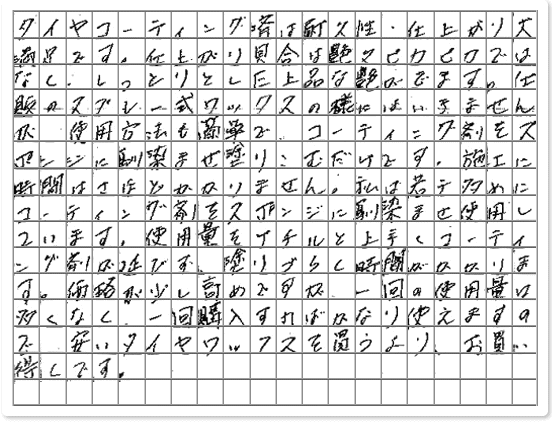 タイヤコーティング溶は耐久性・仕上がり大
満足です。仕上がり具合は艶々ピカピカでは
なく、しっとりとした上品な艶がでます。仕
販のスプレー式ワックスの様にはいきません
が、使用方法も簡単で、コーティング剤をス
ポンジに馴染ませ塗りこむだけです。施工に
時間はさほどかかりません。私は若干多めに
コーティング剤をスポンジに馴染ませ使用し
ています。使用量をケチルと上手くコーティ
ング剤が延びず、塗りづらく時間がかかりま
す。価格が少し高めですが、一回の使用量は
多くなく、一回購入すればかなり使えますの
で、安いタイヤワックスを買うより、お買い
得くです。